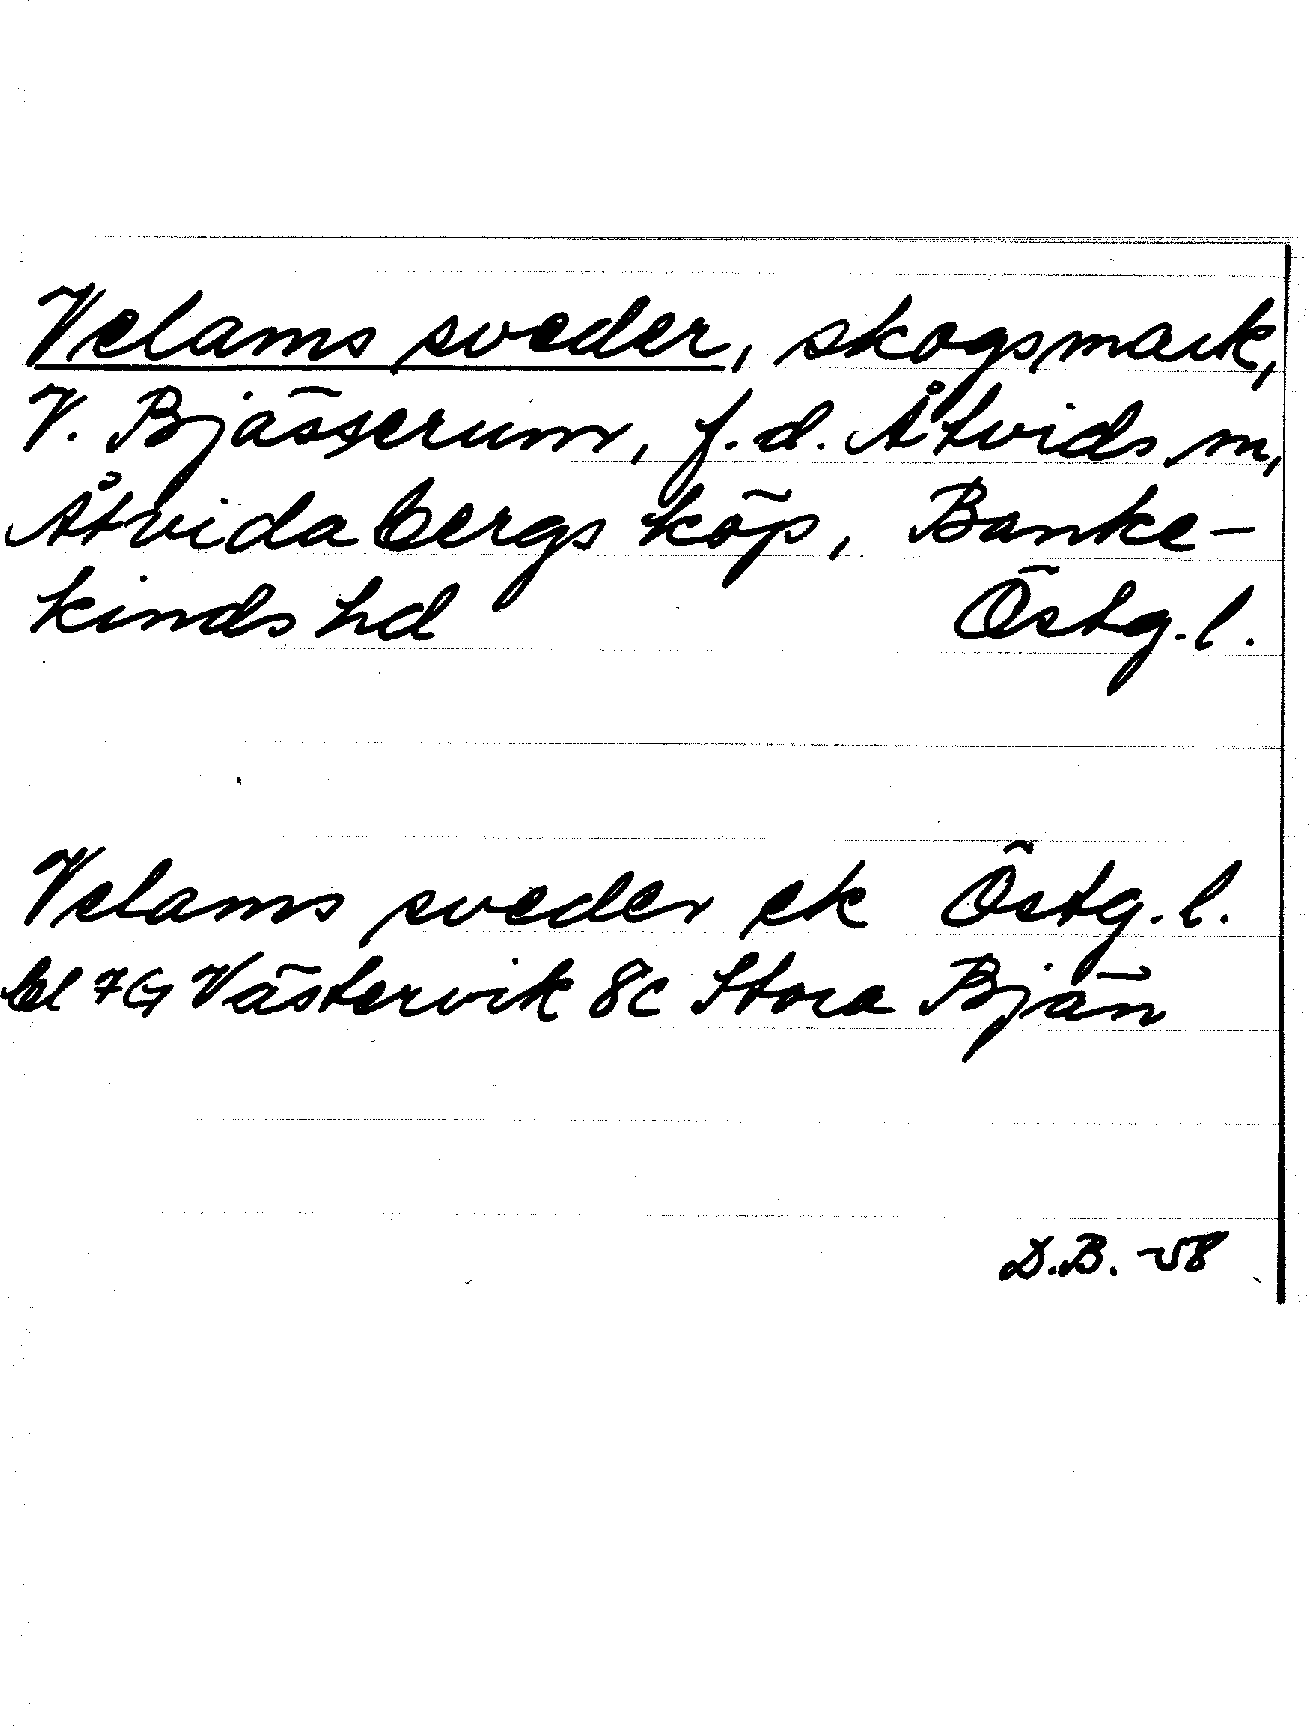 Velams sveder, skogsmark,
V. Bjässerum, f.d. Åtvids sn,
Åtvidabergs köp, Banke-
kinds hd Östg.l.
Velams sveder ek Östg.l.
bl 7G Västervik 8c Stora Bjän
D.B. -58